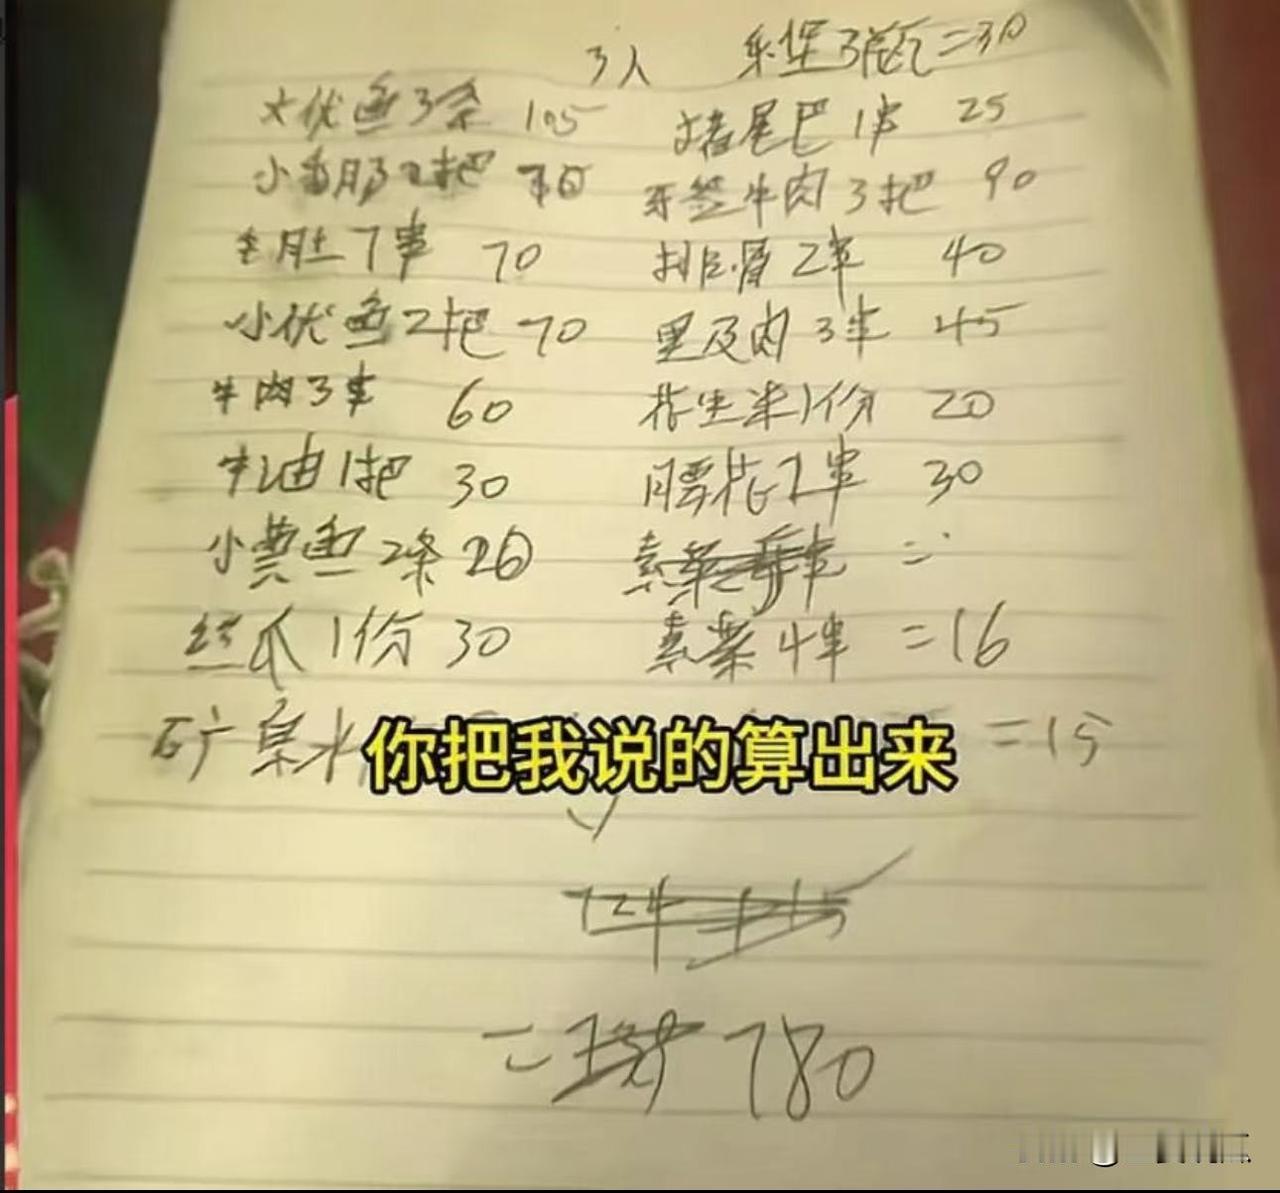 3人 乐堡3瓶=30
大优鱼3条 105 猪尾巴1串 25
小香肠2把 牙签牛肉3把 90
毛肚7串 70 排骨2串 40
小优鱼2把 70 里及肉3串 45
牛肉3串 60 花生米1份 20
牛油1把 30 腰花2串 30
小黄鱼2条 20 素菜
丝瓜1份 30 素菜4串 =16
矿泉水 =15
你把我说的算出来
724
= 780